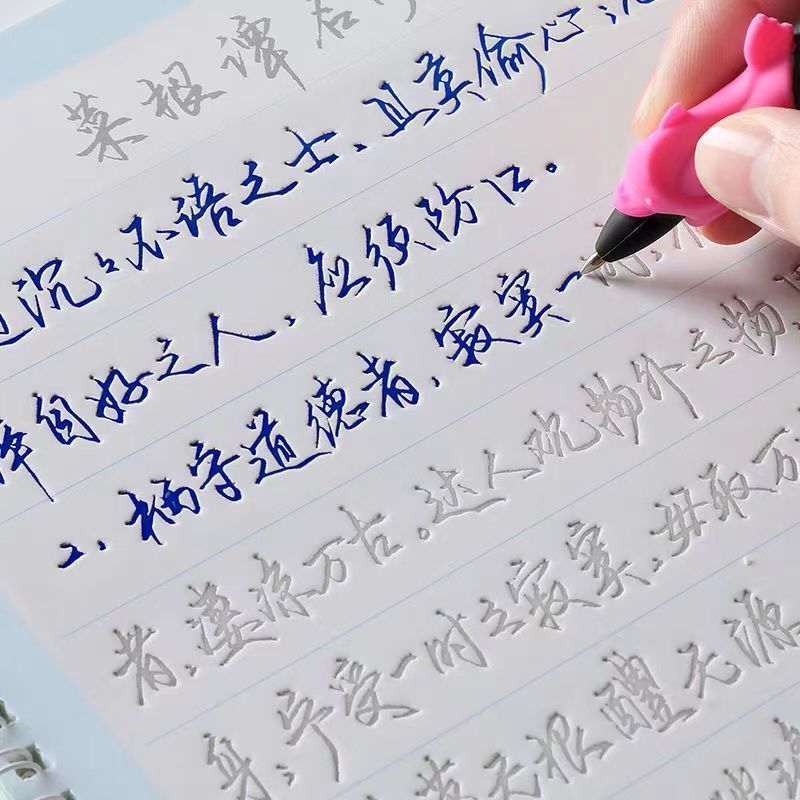 菜根谭
沉々不语之士、且莫偷心;
自好之人，应须防口。
2、栖守道德者，寂寞一
者，凄凉万古。达人观物外之物，
身，宁受一时之寂寞，毋取万
无根醴无源